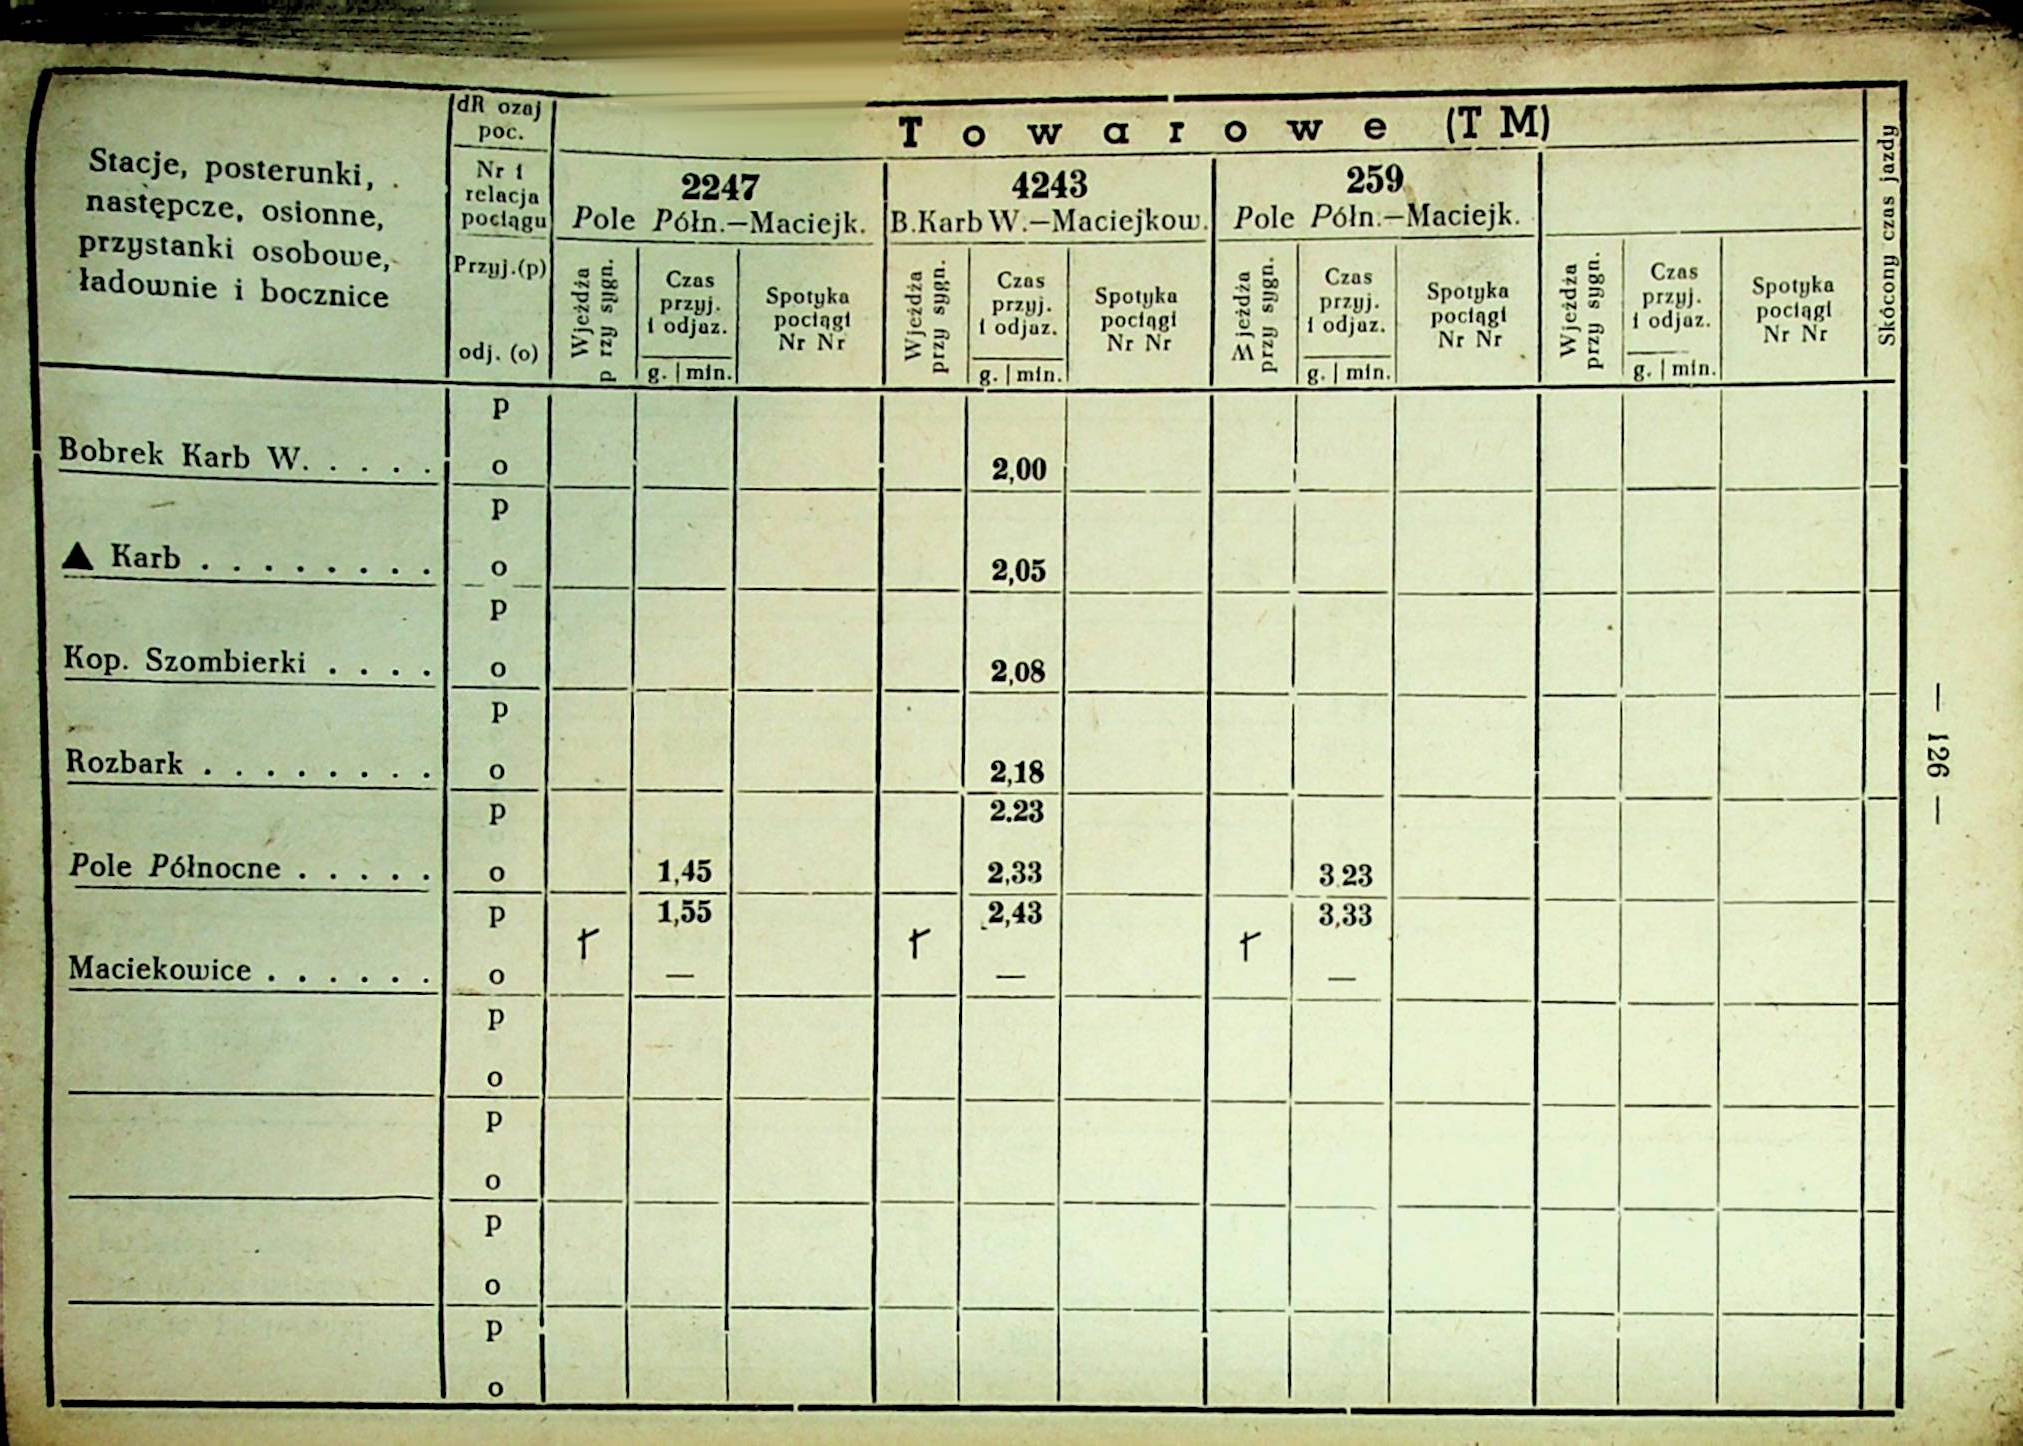 dR ozaj
poc.
T o w a r o w e (T M)
Stacje, posterunki,
następcze, osłonne,
przystanki osobowe,
ładownie i bocznice
Nr i
relacja
pociągu
2247
Pole Półn.—Maciejk.
4243
B.Karb W.—Maciejkow.
259
Pole Półn.—Maciejk.
Przyj.(p)
odj. (o)
Wjeżdża
p rzy sygn.
Czas
przyj.
i odjaz.
g. | min.
Spotyka
pociągi
Nr Nr
Wjeżdża
przy sygn.
Czas
przyj.
i odjaz.
g. | min.
Spotyka
pociągi
Nr Nr
Wjeżdża
przy sygn.
Czas
przyj.
i odjaz.
g. | min.
Spotyka
pociągi
Nr Nr
Wjeżdża
przy sygn.
Czas
przyj.
i odjaz.
g. | min.
Spotyka
pociągi
Nr Nr
Skócony czas jazdy
p
Bobrek Karb W. . . . . o 2,00
p
▲ Karb . . . . . . . . o 2,05
p
Kop. Szombierki . . . . o 2,08
p
Rozbark . . . . . . . . o 2,18
p 2.23
Pole Północne . . . . . o 1,45 2,33 3 23
p 1,55 2,43 3,33
Maciekowice . . . . . . o — — —
p
o
p
o
p
o
p
o
— 126 —